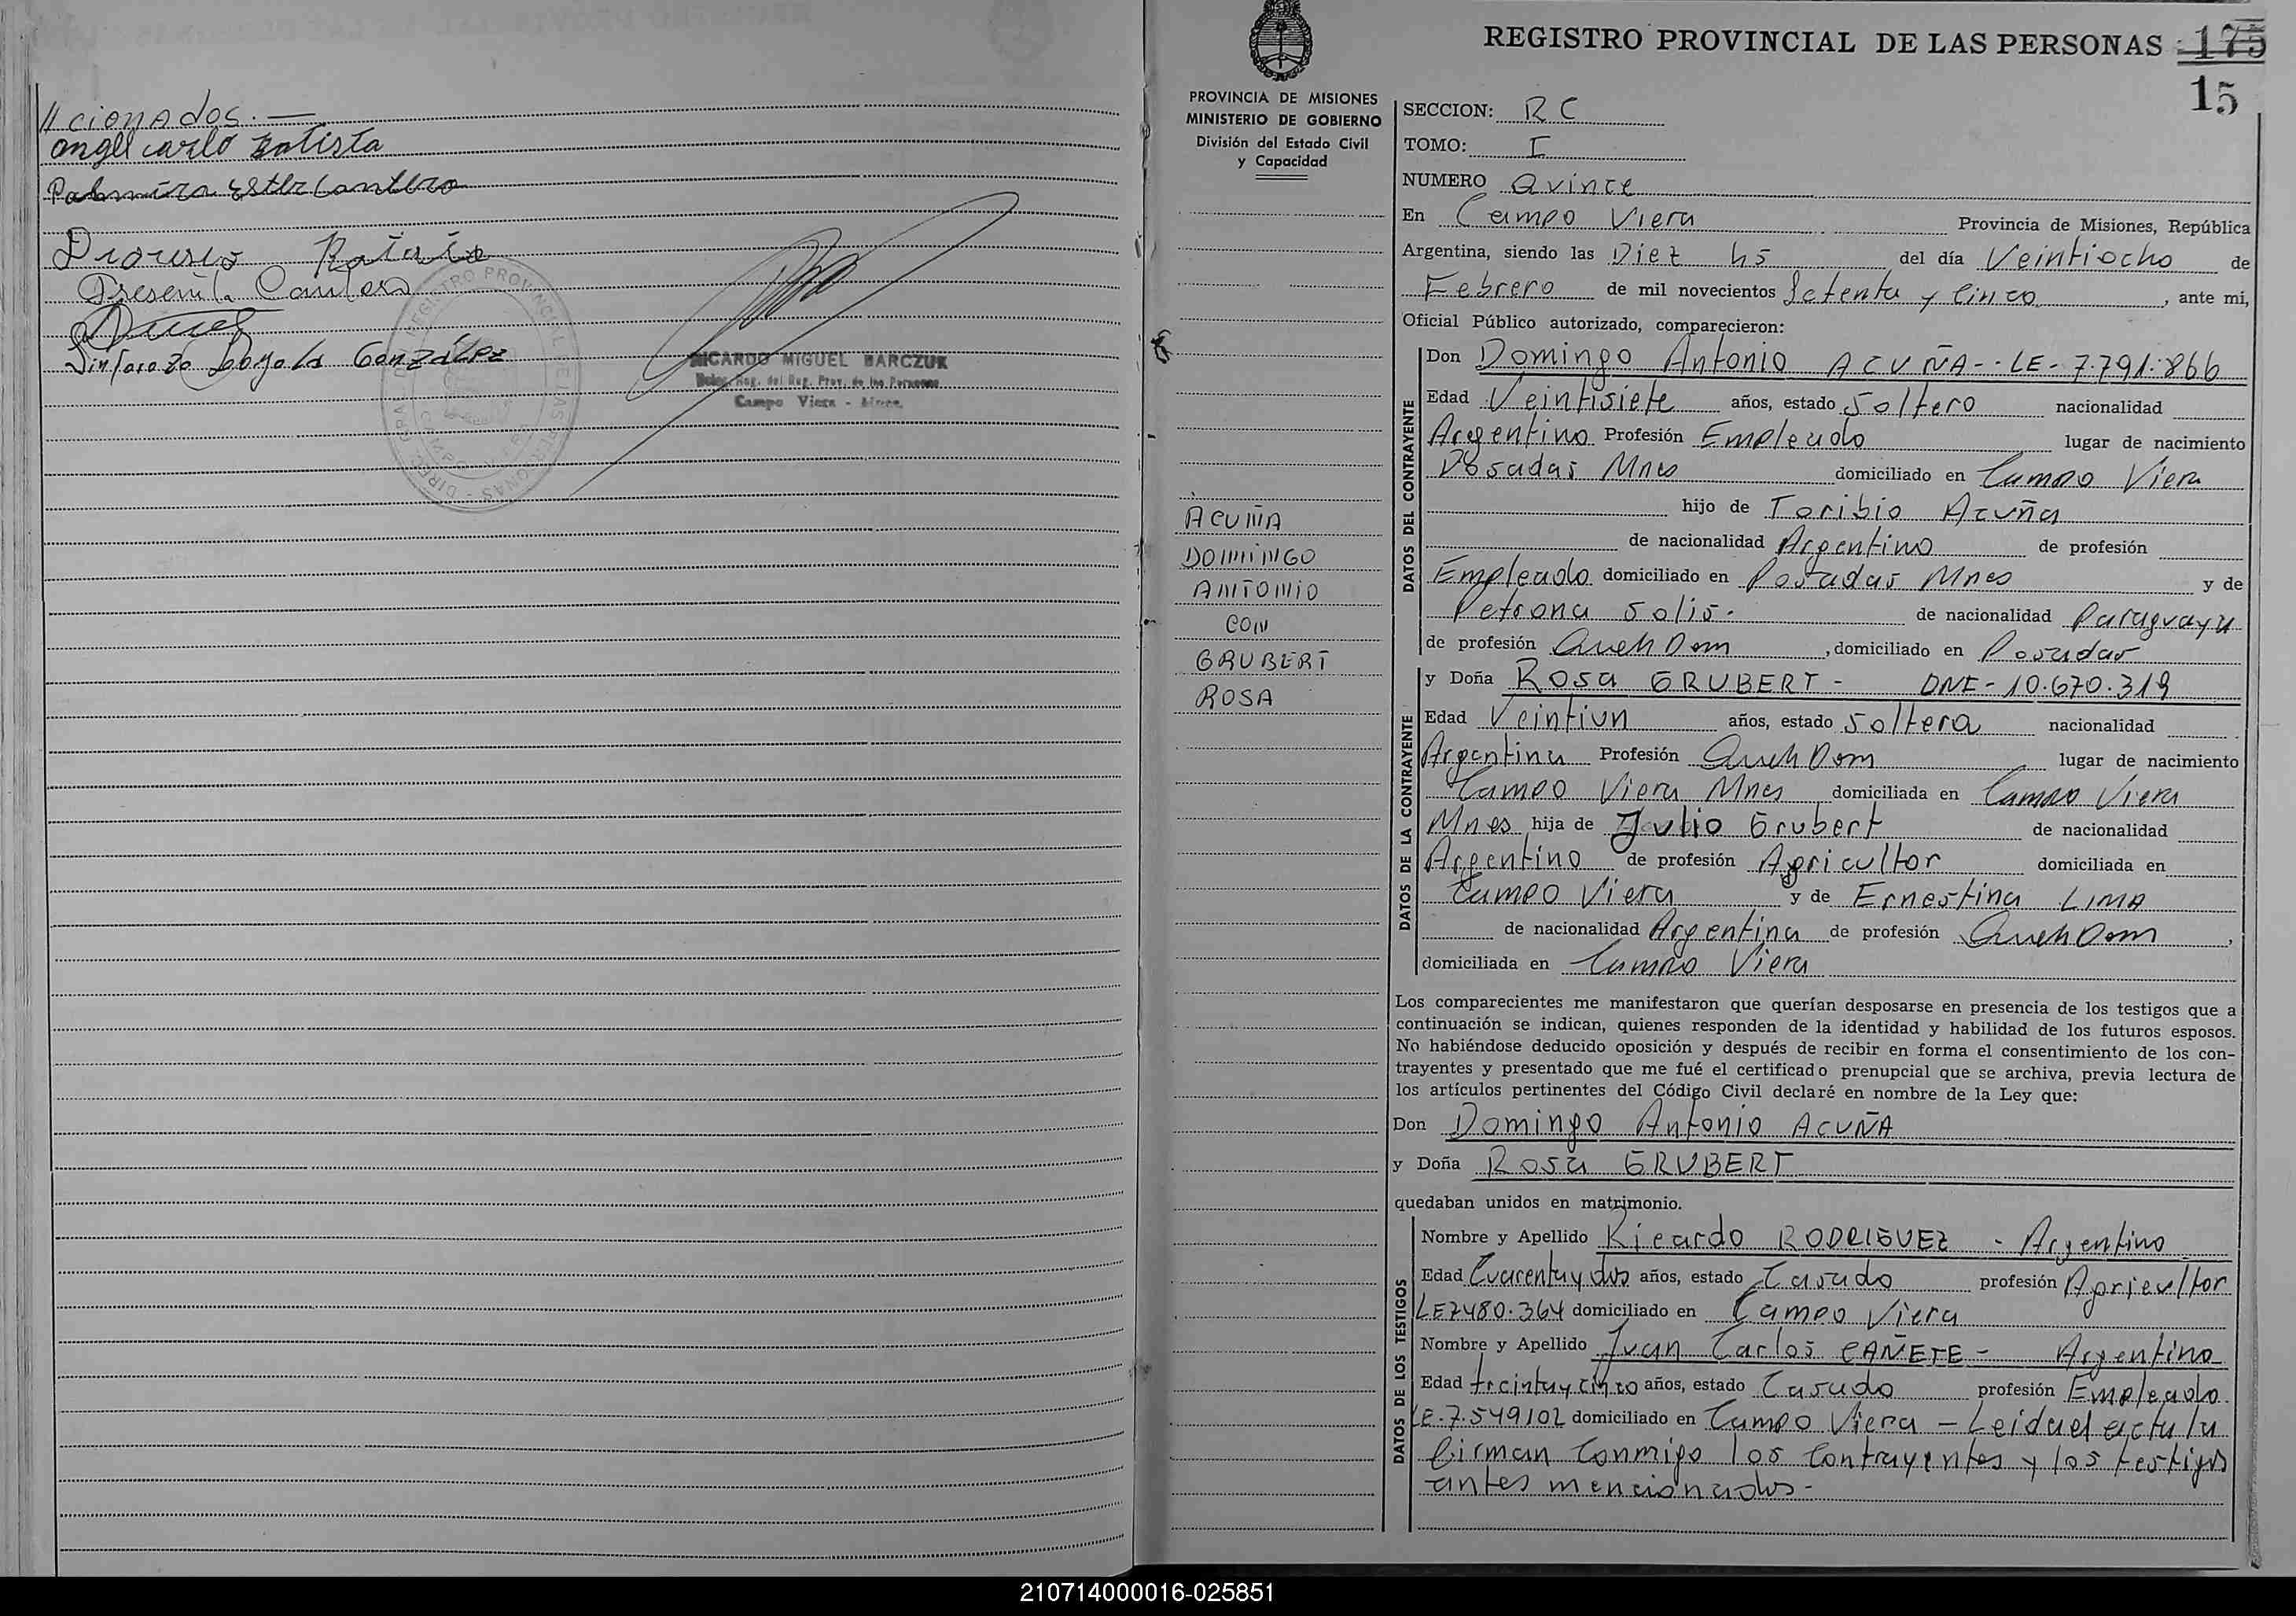 //cionados.—
Angel carlo Batista
Palmira Ester Cantero
Cantero
González
REGISTRO PROVINCIAL DE LAS PERSONAS
RICARDO MIGUEL BARCZUK
Deleg. Reg. del Reg. Prov. de las Personas
Campo Viera - Mnes.
REGISTRO PROVINCIAL DE LAS PERSONAS 175
15
PROVINCIA DE MISIONES
MINISTERIO DE GOBIERNO
División del Estado Civil
y Capacidad
ACUÑA
DOMINGO
ANTONIO
CON
GRUBERT
ROSA
SECCION: RC
TOMO: I
NUMERO Quince
En Campo Viera Provincia de Misiones, República
Argentina, siendo las Diez hs del día Veintiocho de
Febrero de mil novecientos Setenta y Cinco, ante mi,
Oficial Público autorizado, comparecieron:
DATOS DEL CONTRAYENTE
Don Domingo Antonio ACUÑA-- LE- 7.791.866
Edad Veintisiete años, estado Soltero nacionalidad
Argentino Profesión Empleado lugar de nacimiento
Posadas Mnes domiciliado en Campo Viera
hijo de Toribio Acuña
de nacionalidad Argentino de profesión
Empleado domiciliado en Posadas Mnes y de
Petrona Solis- de nacionalidad Paraguaya
de profesión Queh Dom, domiciliado en Posadas
DATOS DE LA CONTRAYENTE
y Doña Rosa GRUBERT - DNI- 10.670.319
Edad Veintiun años, estado Soltera nacionalidad
Argentina Profesión Queh Dom lugar de nacimiento
Campo Viera Mnes domiciliada en Campo Viera
Mnes hija de Julio Grubert de nacionalidad
Argentino de profesión Agricultor domiciliada en
Campo Viera y de Ernestina LIMA
de nacionalidad Argentina de profesión Queh Dom,
domiciliada en Campo Viera
Los comparecientes me manifestaron que querían desposarse en presencia de los testigos que a
continuación se indican, quienes responden de la identidad y habilidad de los futuros esposos.
No habiéndose deducido oposición y después de recibir en forma el consentimiento de los con-
trayentes y presentado que me fué el certificado prenupcial que se archiva, previa lectura de
los artículos pertinentes del Código Civil declaré en nombre de la Ley que:
Don Domingo Antonio ACUÑA
y Doña Rosa GRUBERT
quedaban unidos en matrimonio.
DATOS DE LOS TESTIGOS
Nombre y Apellido Ricardo RODRIGUEZ - Argentino
Edad Cuarenta y dos años, estado Casado profesión Agricultor
LE7480.364 domiciliado en Campo Viera
Nombre y Apellido Juan Carlos CAÑETE - Argentino
Edad treinta y cinco años, estado Casado profesión Empleado
LE.7.549102 domiciliado en Campo Viera - Leida el acta la
firman Conmigo los Contrayentes y los testigos
antes mencionados-
210714000016-025851